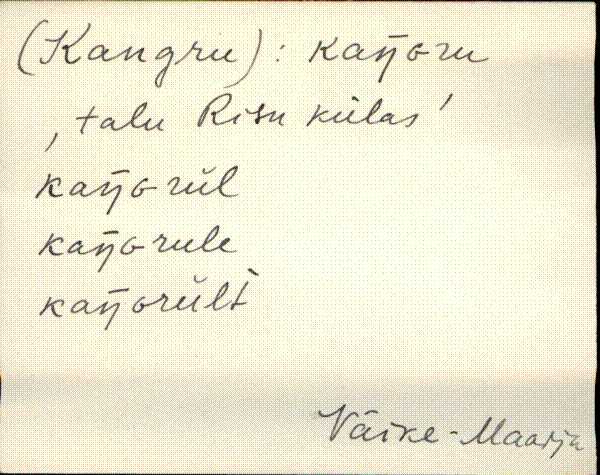 (Kangru) : kaŋGru
‚talu Risu külas'
kaŋGrŭl
kaŋGrule
kaŋGrŭlt
Väike-Maarja